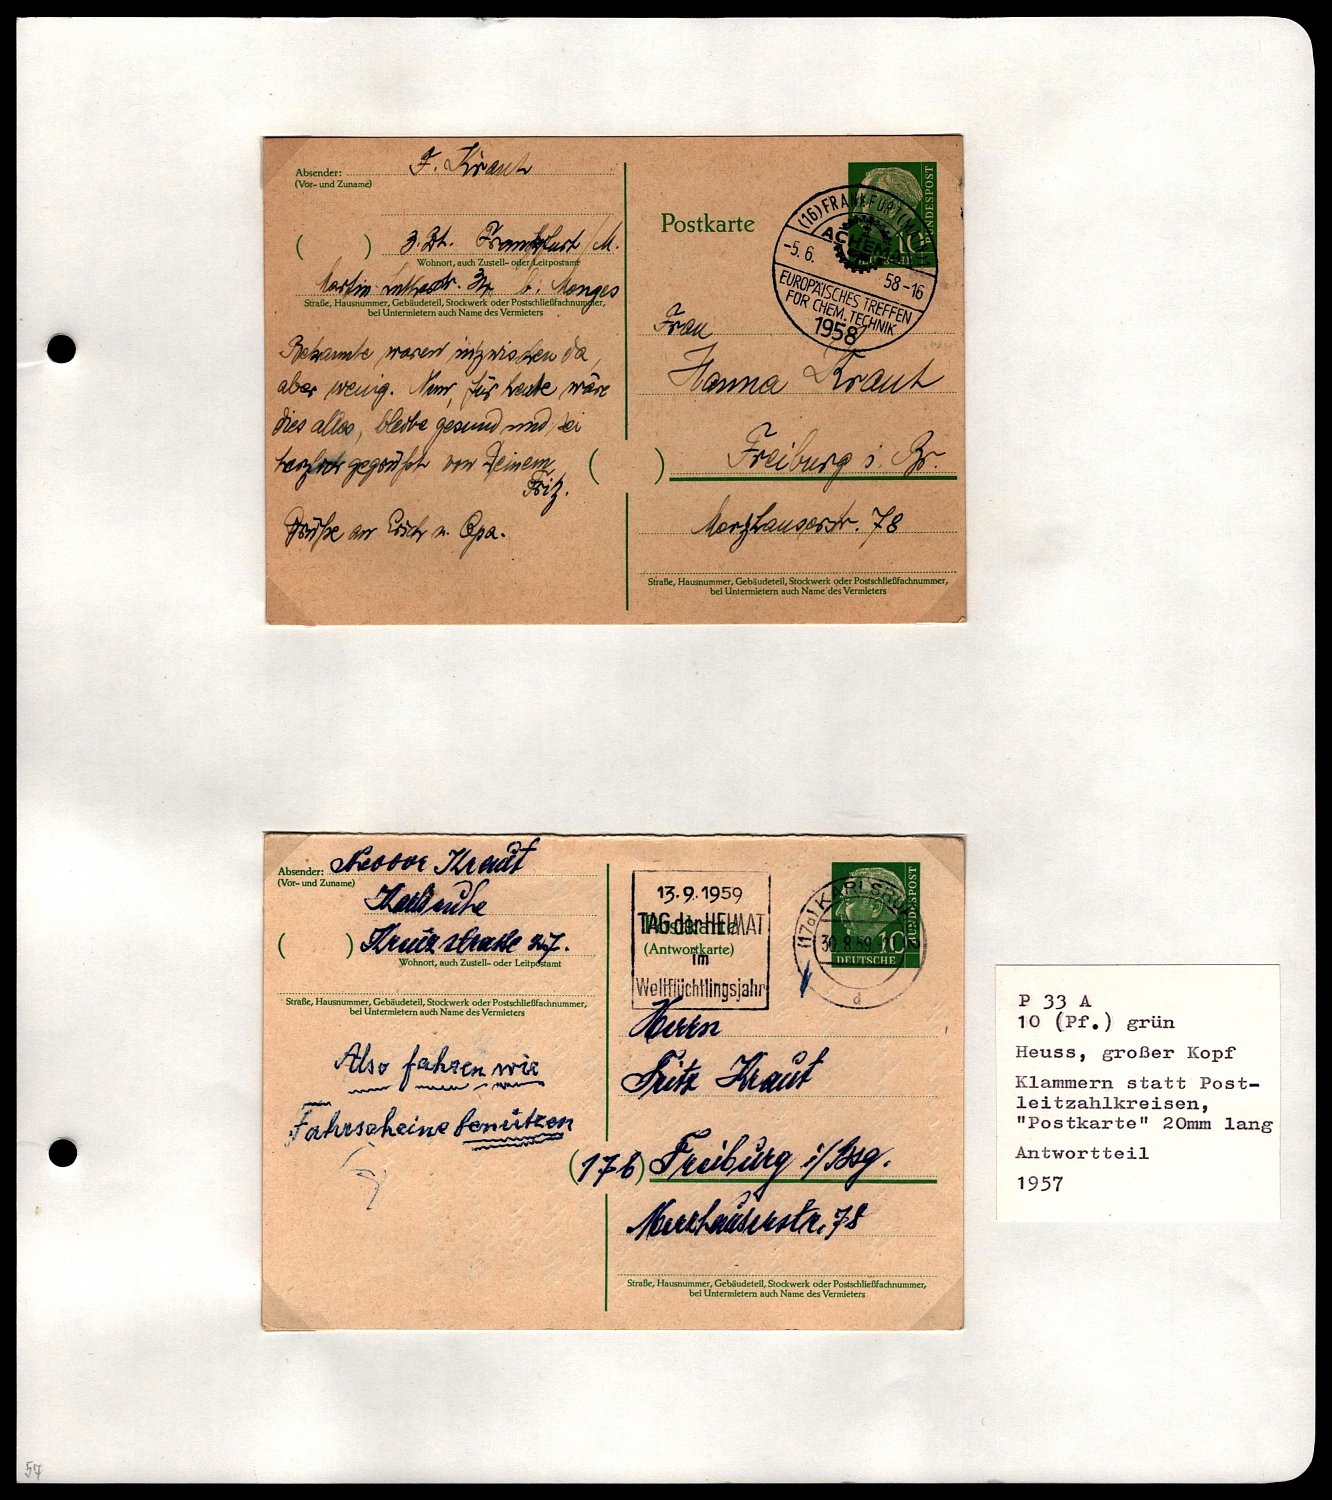 Absender: F. Kraut
(Vor- und Zuname)
( ) z. Zt. Frankfurt/M.
Wohnort, auch Zustell- oder Leitpostamt
Martin Lutherstr. b. Menges
Straße, Hausnummer, Gebäudeteil, Stockwerk oder Postschließfachnummer,
bei Untermietern auch Name des Vermieters
Bekannte waren inzwischen da,
aber wenig. Nun, für heute wäre
dies alles, bleibe gesund und sei
herzlich gegrüßt von Deinem
Fritz.
Grüße an u. Opa.
Postkarte
(16) FRANKFURT (MAIN)
ACHEMA
-5.6. 58-16
EUROPÄISCHES TREFFEN
FÜR CHEM. TECHNIK
1958
10
DEUTSCHE BUNDESPOST
Frau
Hanna Kraut
( ) Freiburg i. Br.
Merzhauserstr. 78
Straße, Hausnummer, Gebäudeteil, Stockwerk oder Postschließfachnummer,
bei Untermietern auch Name des Vermieters
Absender: Kraut
(Vor- und Zuname)
Karlsruhe
( ) Kreuzstraße 27.
Wohnort, auch Zustell- oder Leitpostamt
Straße, Hausnummer, Gebäudeteil, Stockwerk oder Postschließfachnummer,
bei Untermietern auch Name des Vermieters
Also fahren wir
Fahrscheine benützen
Postkarte
(Antwortkarte)
13.9.1959
TAG der HEIMAT
im
Weltflüchtlingsjahr
(17a) KARLSRUHE
30.8.59
d
10
DEUTSCHE BUNDESPOST
Herrn
Fritz Kraut
(17b) Freiburg i/Bsg.
Merzhauserstr. 78
Straße, Hausnummer, Gebäudeteil, Stockwerk oder Postschließfachnummer,
bei Untermietern auch Name des Vermieters
P 33 A
10 (Pf.) grün
Heuss, großer Kopf
Klammern statt Post-
leitzahlkreisen,
"Postkarte" 20mm lang
Antwortteil
1957
57